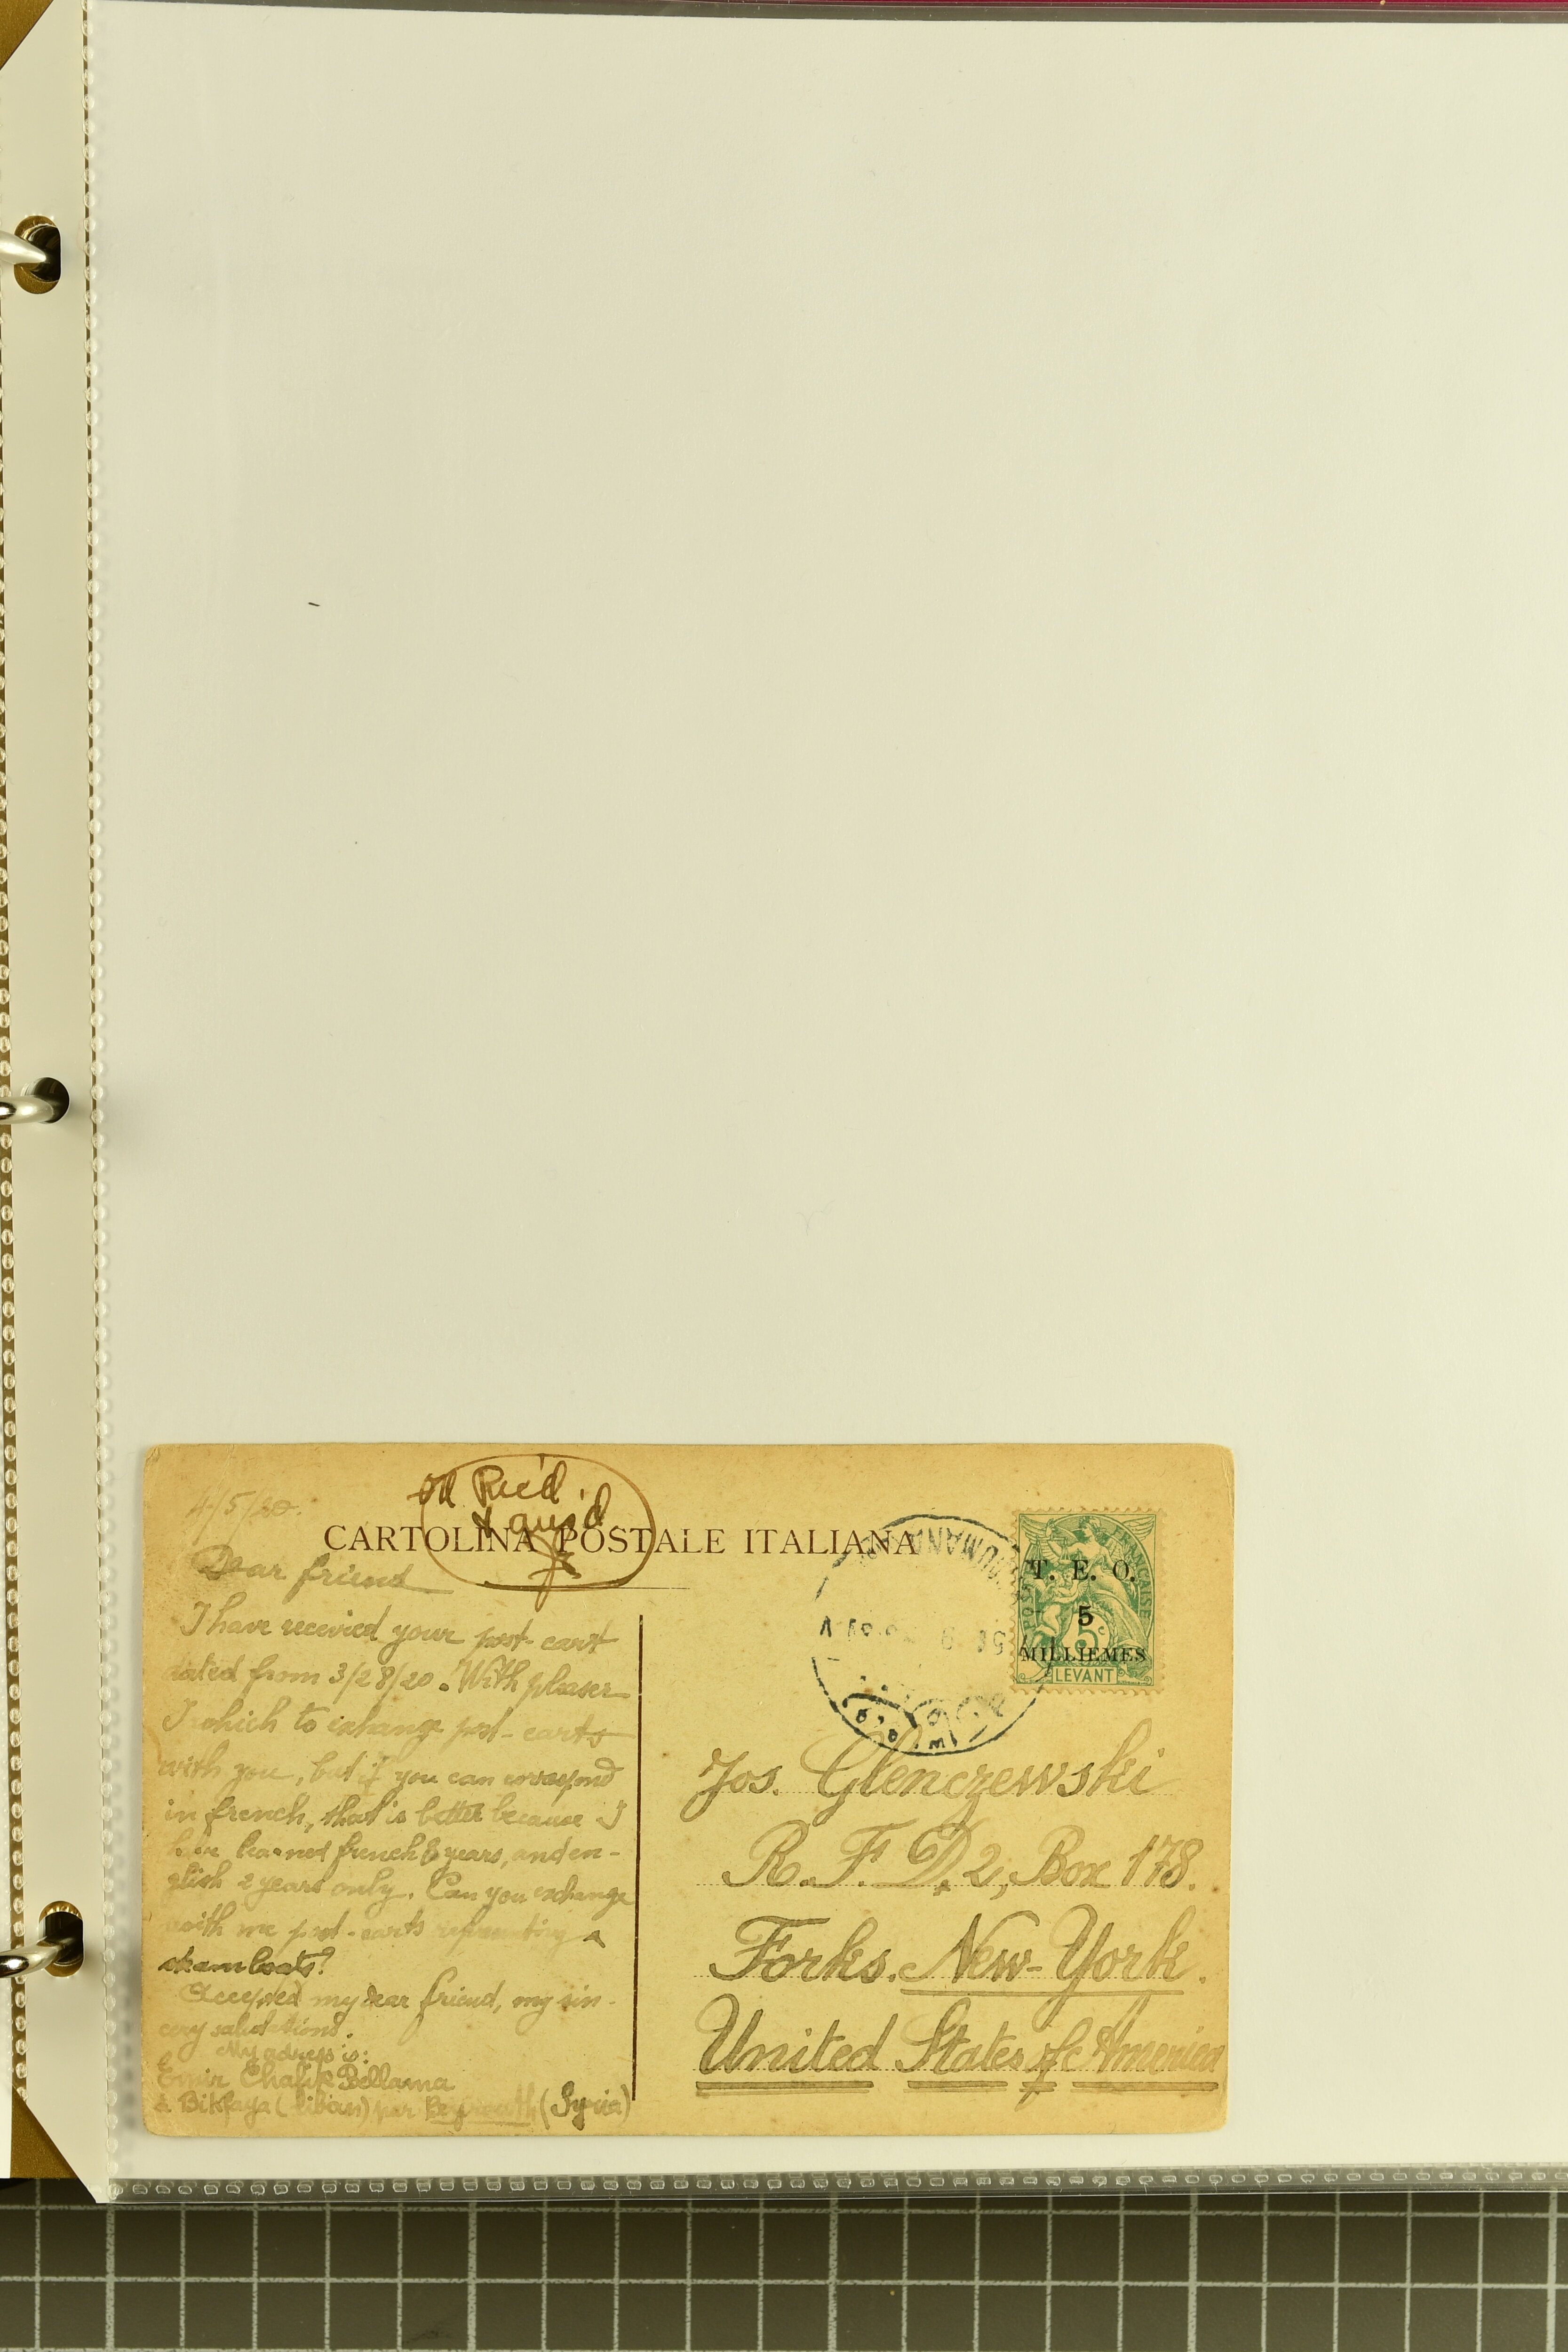 4/5/20.
Rec'd.
CARTOLINA POSTALE ITALIANA
Dear friend
I have recevied your post-cart
dated from 3/28/20. With pleaser
I which to exhange post-carts
with you, but if you can correspond
in french, that is better because I
have learned french 8 years, and en-
glish 2 years only. Can you exchange
with me post-carts representing a
steamboats?
Accepted my dear friend, my sin-
cery salutations.
My adress is:
Emir Chafik Bellama
à Bikfaya (liban) par Beyrouth (Syria)
T. E. O.
5
MILLIEMES
5c
LEVANT
POSTE FRANÇAISE
Jos. Glenczewski
R. F. D. 2, Box 178.
Forks. New-York.
United States of America